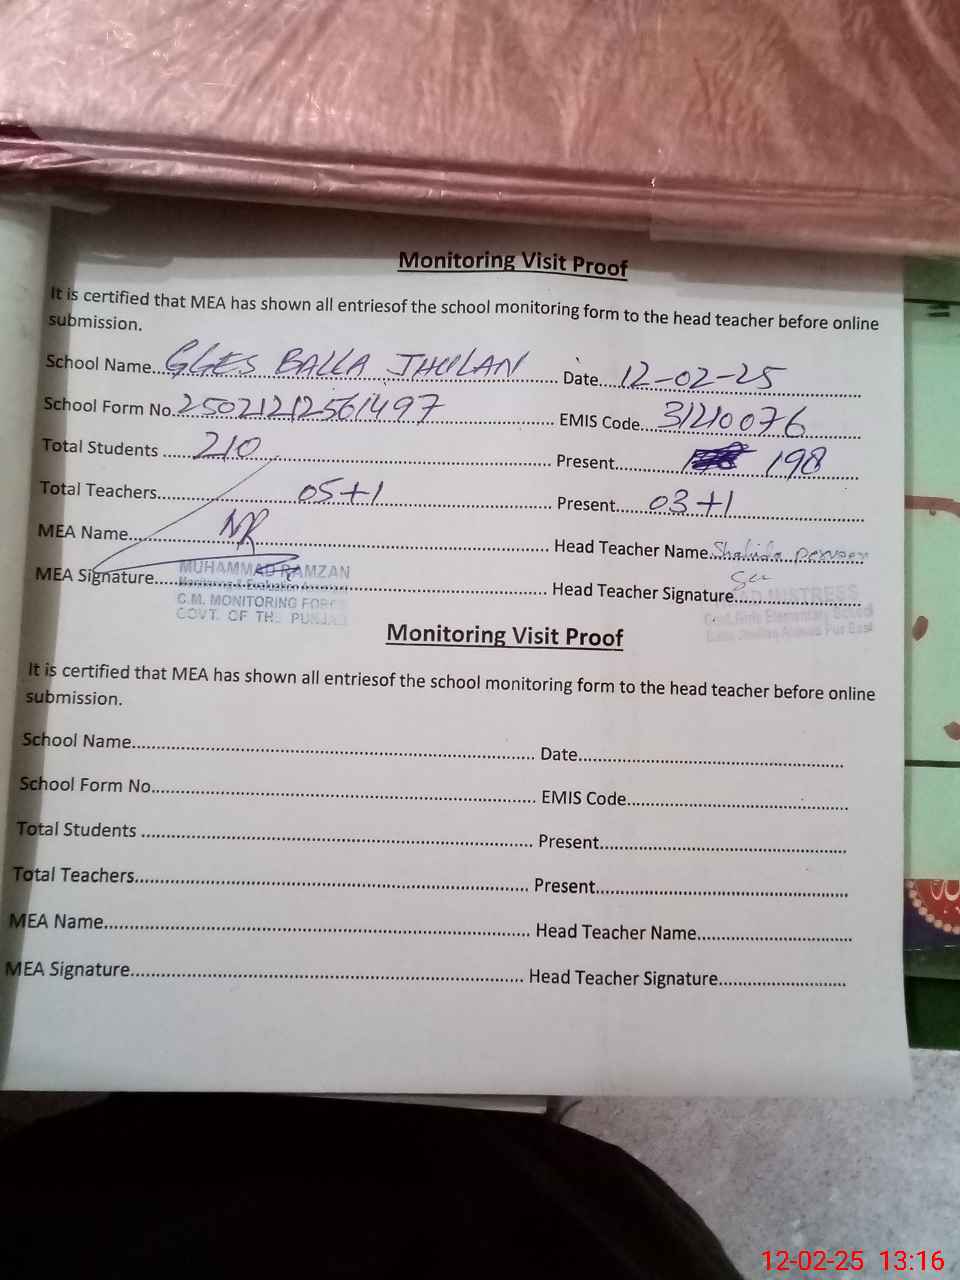 Monitoring Visit Proof
It is certified that MEA has shown all entriesof the school monitoring form to the head teacher before online
submission.
School Name... GGES BALLA JHULAN ... Date... 12-02-25
School Form No. 25021212561497 ... EMIS Code... 31210076
Total Students ..... 210 ... Present... 198
Total Teachers... 05+1 ... Present... 03+1
MEA Name... MR ... Head Teacher Name... Shahida perveen
MEA Signature... Head Teacher Signature...
MUHAMMAD RAMZAN
Monitoring & Evaluation
C.M. MONITORING FORCE
GOVT. OF THE PUNJAB
HEADMISTRESS
Govt. Girls Elementary School
Monitoring Visit Proof
It is certified that MEA has shown all entriesof the school monitoring form to the head teacher before online
submission.
School Name... Date...
School Form No... EMIS Code...
Total Students ... Present...
Total Teachers... Present...
MEA Name... Head Teacher Name...
MEA Signature... Head Teacher Signature...
12-02-25 13:16